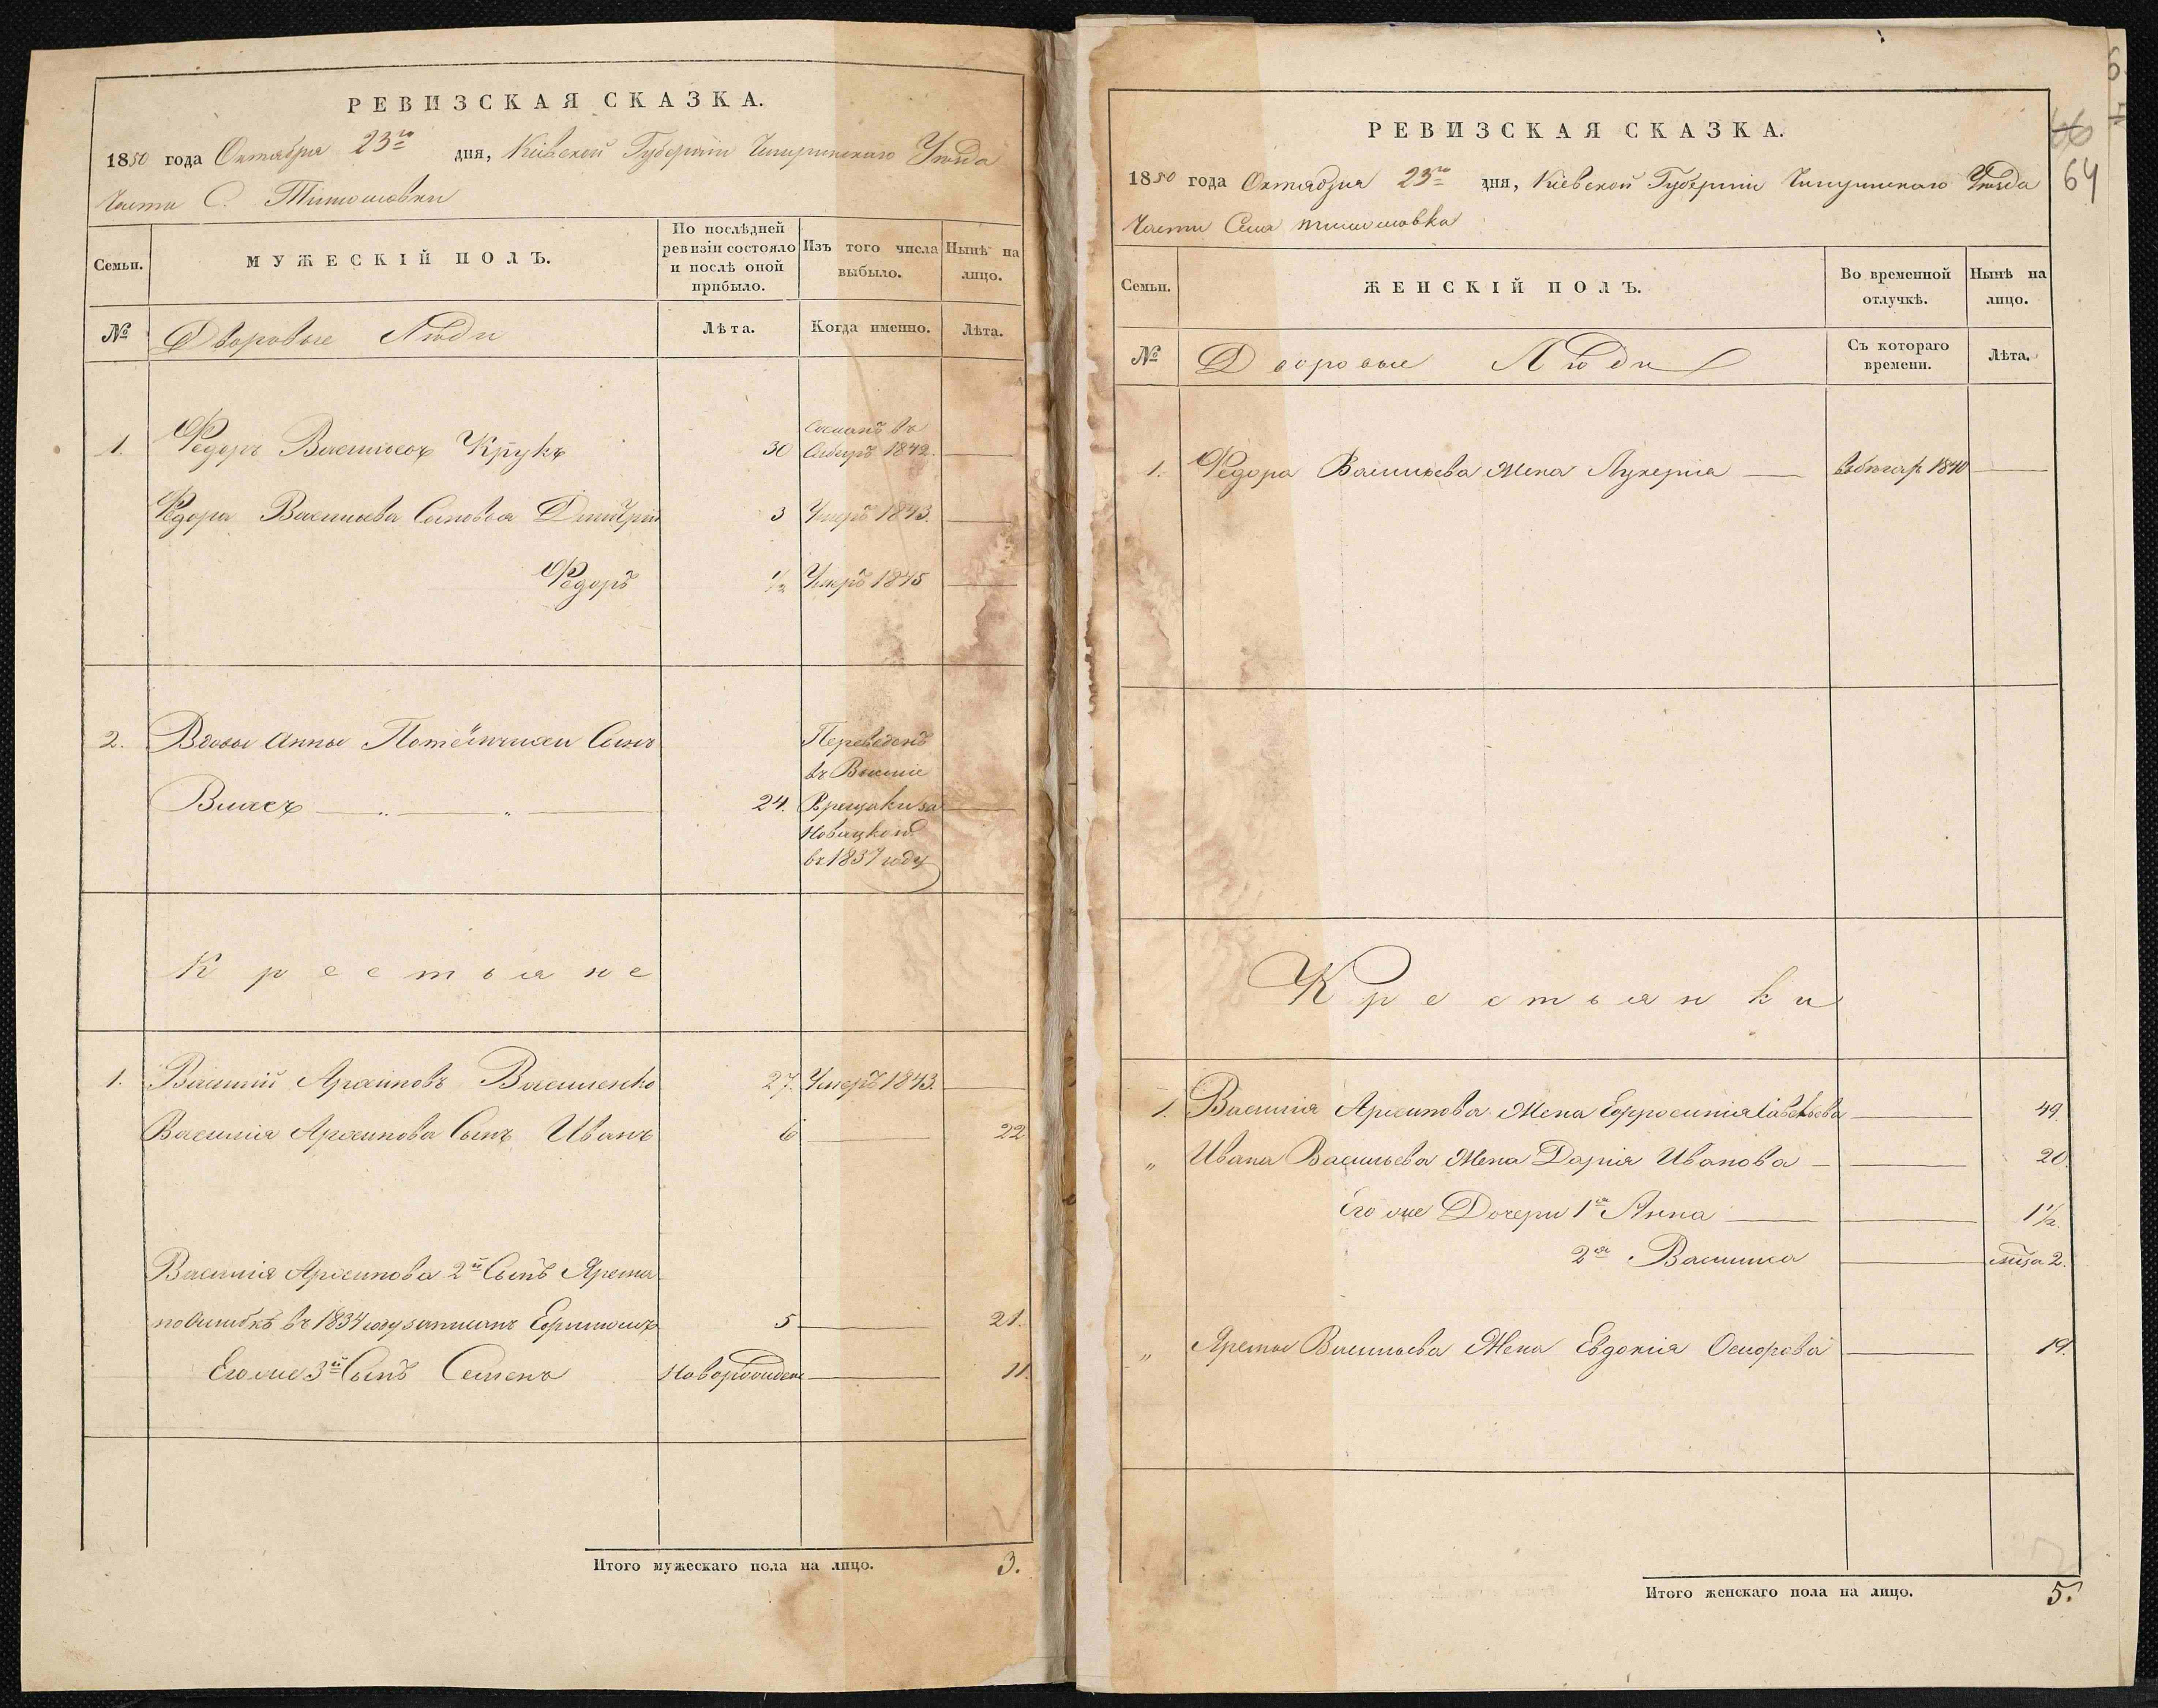 РЕВИЗСКАЯ СКАЗКА.
1850 года Октября 23го дня, Кіевской Губерніи Чигиринскаго Уѣзда
Части С. Тимошовки
Семьи.
МУЖЕСКІЙ ПОЛЪ.
По послѣдней ревизіи состояло и послѣ оной прибыло.
Изъ того числа выбыло.
Нынѣ на лицо.
№
Дворовые Люди
Лѣта.
Когда именно.
Лѣта.
1. Федоръ Васильевъ Крукъ 30 Сосланъ въ Сибирь 1842.
Федора Васильева Сыновья Дмитрій 3 Умеръ 1843.
Федоръ 1/2 Умеръ 1845
2. Вдовы Анны Сынъ
Власъ 24. Переведенъ
въ
въ 1837 году
Крестьяне
1. Василій Архиповъ Василенко 27. Умеръ 1843.
Василія Архипова Сынъ Иванъ 6 22
Василія Архипова 2й Сынъ Ярема
по Ошибкѣ въ 1834 году записанъ 5 21.
Его же 3й Сынъ Семенъ Новорожден 11.
Итого мужескаго пола на лицо. 3.
64
РЕВИЗСКАЯ СКАЗКА.
1850 года Октября 23го дня, Кіевской Губерніи Чигиринскаго Уѣзда
Части Села Тимошовка
Семьи.
ЖЕНСКІЙ ПОЛЪ.
Во временной отлучкѣ.
Нынѣ на лицо.
№
Дворовые Люди
Съ котораго времени.
Лѣта.
1. Федора Васильева Жена Лукерія въ бѣгах 1840
Крестьянки
1. Василія Архипова Жена Ефросинія Савельева 49.
„ Ивана Васильева Жена Дарія Иванова 20.
Его же Дочери 1я Анна 1 1/2.
2я Василиса мѣсяца 2.
„ Яремы Васильева Жена Евдокія 19.
Итого женскаго пола на лицо. 5.